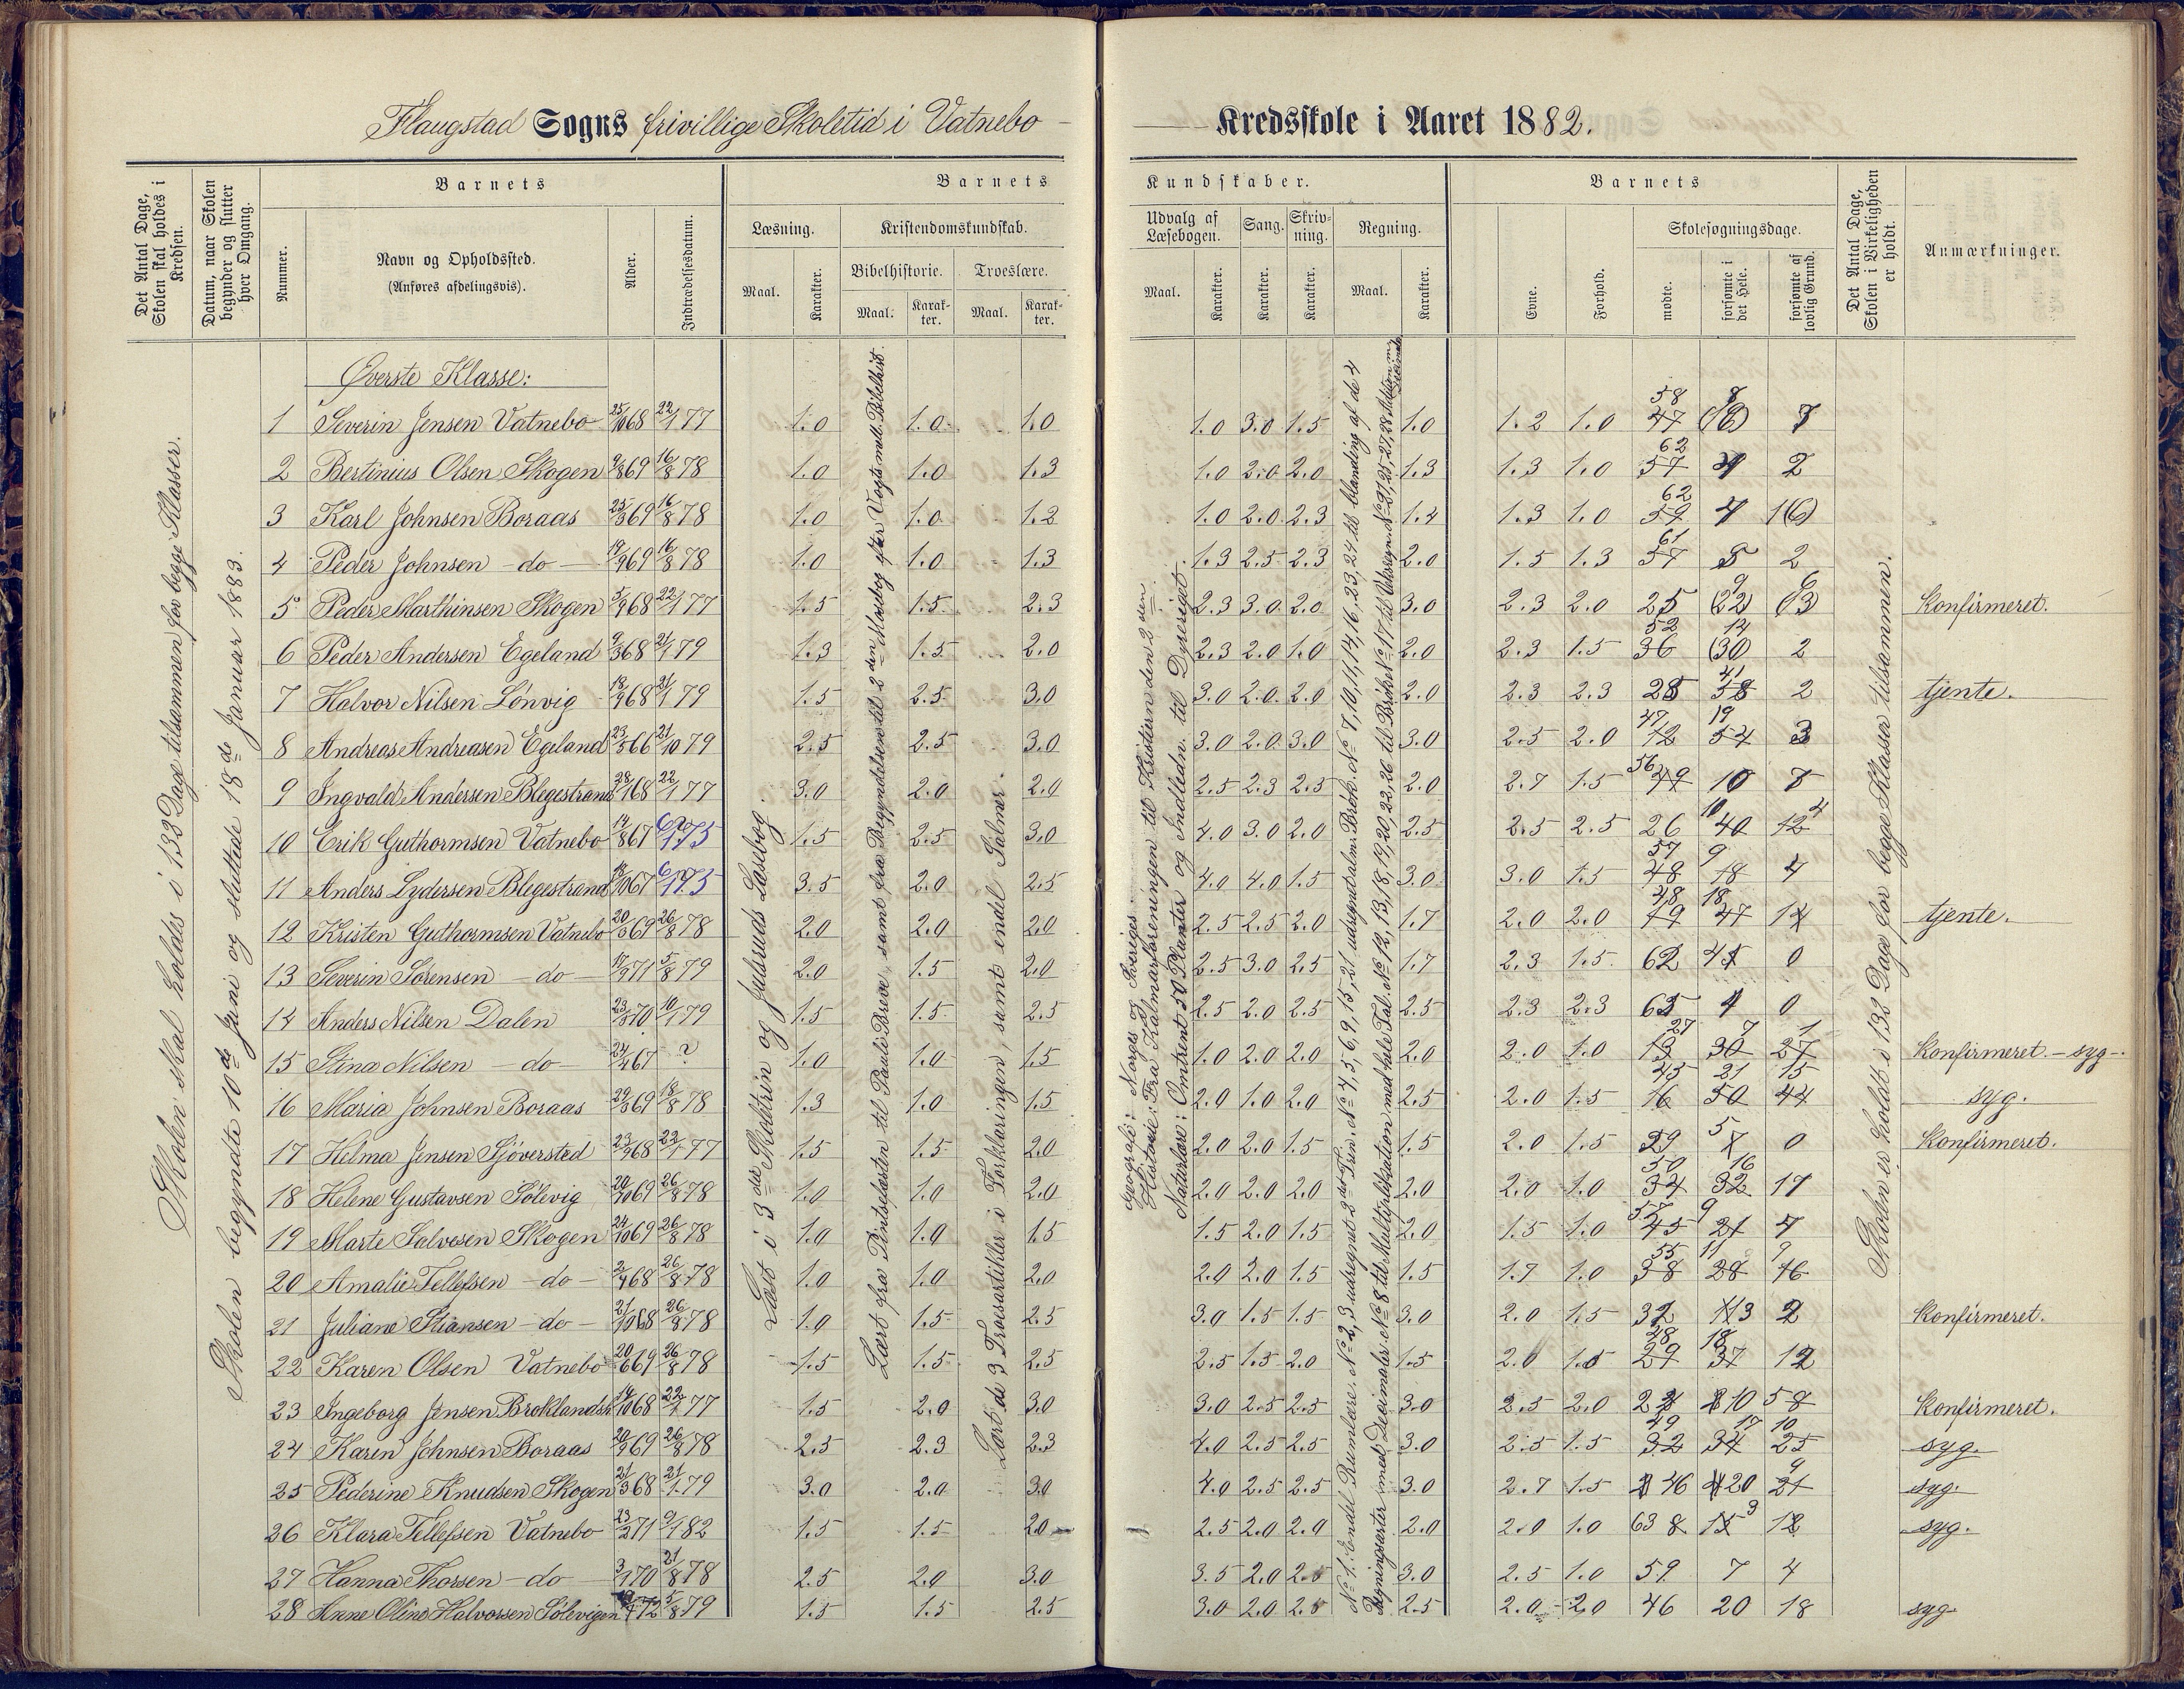 Flaugstad Sogns frivillige Skoletid i Vatnebo
Kredsskole i Aaret 1882.
Det Antal Dage, Skolen skal holdes i Kredsen.
Datum, naar Skolen begynder og slutter hver Omgang.
Barnets
Nummer.
Navn og Opholdssted.
(Anføres afdelingsvis).
Alder.
Indtrædelsesdatum.
Barnets
Læsning.
Maal.
Karakter.
Kristendomskundskab.
Bibelhistorie.
Maal.
Karakter.
Troeslære.
Maal.
Karakter.
Kundskaber.
Udvalg af Læsebogen.
Maal.
Karakter.
Sang.
Karakter.
Skrivning.
Karakter.
Regning.
Maal.
Karakter.
Barnets
Evne.
Forhold.
Skolesøgningsdage.
mødte.
forsømte i det Hele.
forsømte af lovlig Grund.
Det Antal Dage, Skolen i Virkeligheden er holdt.
Anmærkninger.
Skolen skal holdes i 132 Dage tilsammen for begge Klasser.
Skolen begyndte 10de Juni og sluttede 18de Januar 1883.
Læst i 3die Skoletrin og Julsruds Læsebog.
Lært fra Pintsefesten til Pauli Breve, samt fra Begyndelsen til 2den Mosebog efter Vogts mell. Bibelhist.
Lært de 3 Troesartikler i Forklaringen, samt endel Salmer.
Geografi: Norges og Sveriges.
Historie: Fra Kalmarforeningen til Kristiern den 2den
Naturlære: Omtrent 50 Planter og Indledn. til Dyreriget.
Skolen er holdt i 132 Dage for begge Klasser tilsammen.
Øverste Klasse:
1 Severin Jensen Vatnebo 25/10 68 22/1 77 1.0 1.0 1.0 1.0 3.0 1.5 1.0 1.2 1.0
2 Bertinius Olsen Skogen 9/8 69 16/8 78 1.0 1.0 1.3 1.0 2.0 2.0 1.3 1.3 1.0 62 57 2
3 Karl Johnsen Boraas 25/3 69 16/8 78 1.0 1.0 1.2 1.0 2.0 2.3 1.4 1.3 1.0 62 59
4 Peder Johnsen - do - 19/9 69 16/8 78 1.0 1.0 1.3 1.3 2.5 2.3 2.0 1.5 1.3 61 57 2
5 Peder Marthinsen Skogen 5/9 68 22/1 77 1.5 1.5 2.3 2.3 3.0 2.0 3.0 2.3 2.0 25 Konfirmeret.
6 Peder Andersen Egeland 9/3 68 21/1 79 1.3 1.5 2.0 2.3 2.0 1.0 2.0 2.3 1.5 52 36 14 (30) 2
7 Halvor Nilsen Lönvig 18/9 68 21/1 79 1.5 2.5 3.0 3.0 2.0 2.0 2.0 2.3 2.3 25 41 38 2 tjente.
8 Andreas Andreasen Egeland 23/5 66 21/10 79 2.5 2.5 3.0 3.0 2.0 3.0 3.0 2.5 2.0 47 12 19 54 3
9 Ingvald Andersen Blegestrand 28/1 68 22/1 77 3.0 2.0 2.0 2.5 2.3 2.5 2.0 2.7 1.5 56 49 10
10 Erik Guthormsen Vatnebo 14/8 67 6/1 75 1.5 2.5 3.0 4.0 3.0 2.0 2.5 2.5 2.5 26 40 12
11 Anders Lydersen Blegestrand 67 6/1 75 3.5 2.0 2.5 4.0 4.0 1.5 3.0 3.0 1.5 57 48 9 18 4
12 Kristen Guthormsen Vatnebo 20/3 69 26/8 78 2.0 2.0 2.0 2.5 2.5 2.0 1.7 2.0 2.0 48 19 18 47 tjente.
13 Severin Sörensen - do - 71 5/8 79 2.0 1.5 2.0 2.5 3.0 2.5 1.7 2.3 1.5 62 0
14 Anders Nilsen Dalen 70 10/1 79 1.5 1.5 2.5 2.5 2.0 2.5 2.5 2.3 2.3 4 0
15 Stina Nilsen - do - 24/4 67 ? 1.0 1.0 1.5 1.0 2.0 2.0 2.0 2.0 1.0 27 13 7 30 1 27 Konfirmeret. - syg -
16 Maria Johnsen Boraas 29/3 69 18/8 78 1.3 1.0 1.5 2.0 1.0 2.0 2.5 2.0 1.5 45 16 21 50 15 44 syg.
17 Hilma Jensen Sjöversted 23/9 68 22/1 77 1.5 1.5 2.0 2.0 2.0 1.5 1.5 2.0 1.5 29 5 0 Konfirmeret.
18 Helene Gustavsen Sölevig 20/10 69 26/8 78 1.0 1.0 2.0 2.0 2.0 2.0 2.0 2.0 1.0 50 34 16 32 17
19 Marte Salvesen Skogen 24/10 69 26/8 78 1.0 1.0 1.5 1.5 2.0 1.5 2.0 1.5 1.0 57 45 9 21 4
20 Amalie Tellefsen - do - 2/4 68 26/8 78 1.0 1.0 2.0 2.0 2.0 1.5 1.5 1.7 1.0 55 38 11 28 9 16
21 Juliane Stiansen - do - 21/10 68 26/8 78 1.0 1.5 2.5 3.0 1.5 1.5 3.0 2.0 1.5 32 13 2 Konfirmeret.
22 Karen Olsen Vatnebo 20/6 69 26/8 78 1.5 1.5 2.5 2.5 1.5 2.0 1.5 2.0 1.5 48 29 18 37 12
23 Ingeborg Jensen Broklandsh 14/10 68 22/1 77 1.5 2.0 3.0 3.0 2.5 2.5 3.0 2.5 2.0 10 5 Konfirmeret.
24 Karen Johnsen Boraas 20/9 69 26/8 78 2.5 2.3 2.3 4.0 2.5 2.5 3.0 2.5 1.5 49 32 17 34 10 25 syg.
25 Pederine Knudsen Skogen 21/3 68 21/1 79 3.0 2.0 3.0 4.0 2.5 2.5 3.0 2.7 1.5 46 20 9 21 syg.
26 Klara Tellefsen Vatnebo 23/2 71 9/1 82 1.5 1.5 2.0 2.5 2.0 2.0 2.0 2.0 1.0 63 3 12 syg.
27 Hanna Thorsen - do - 3/1 70 21/8 78 2.5 2.0 3.0 3.5 2.0 2.5 3.0 2.5 1.0 59 7 4
28 Anne Oline Halvorsen Sölevigen 72 5/8 79 1.5 1.5 2.5 3.0 2.0 2.5 2.5 2.0 2.0 46 20 18 syg